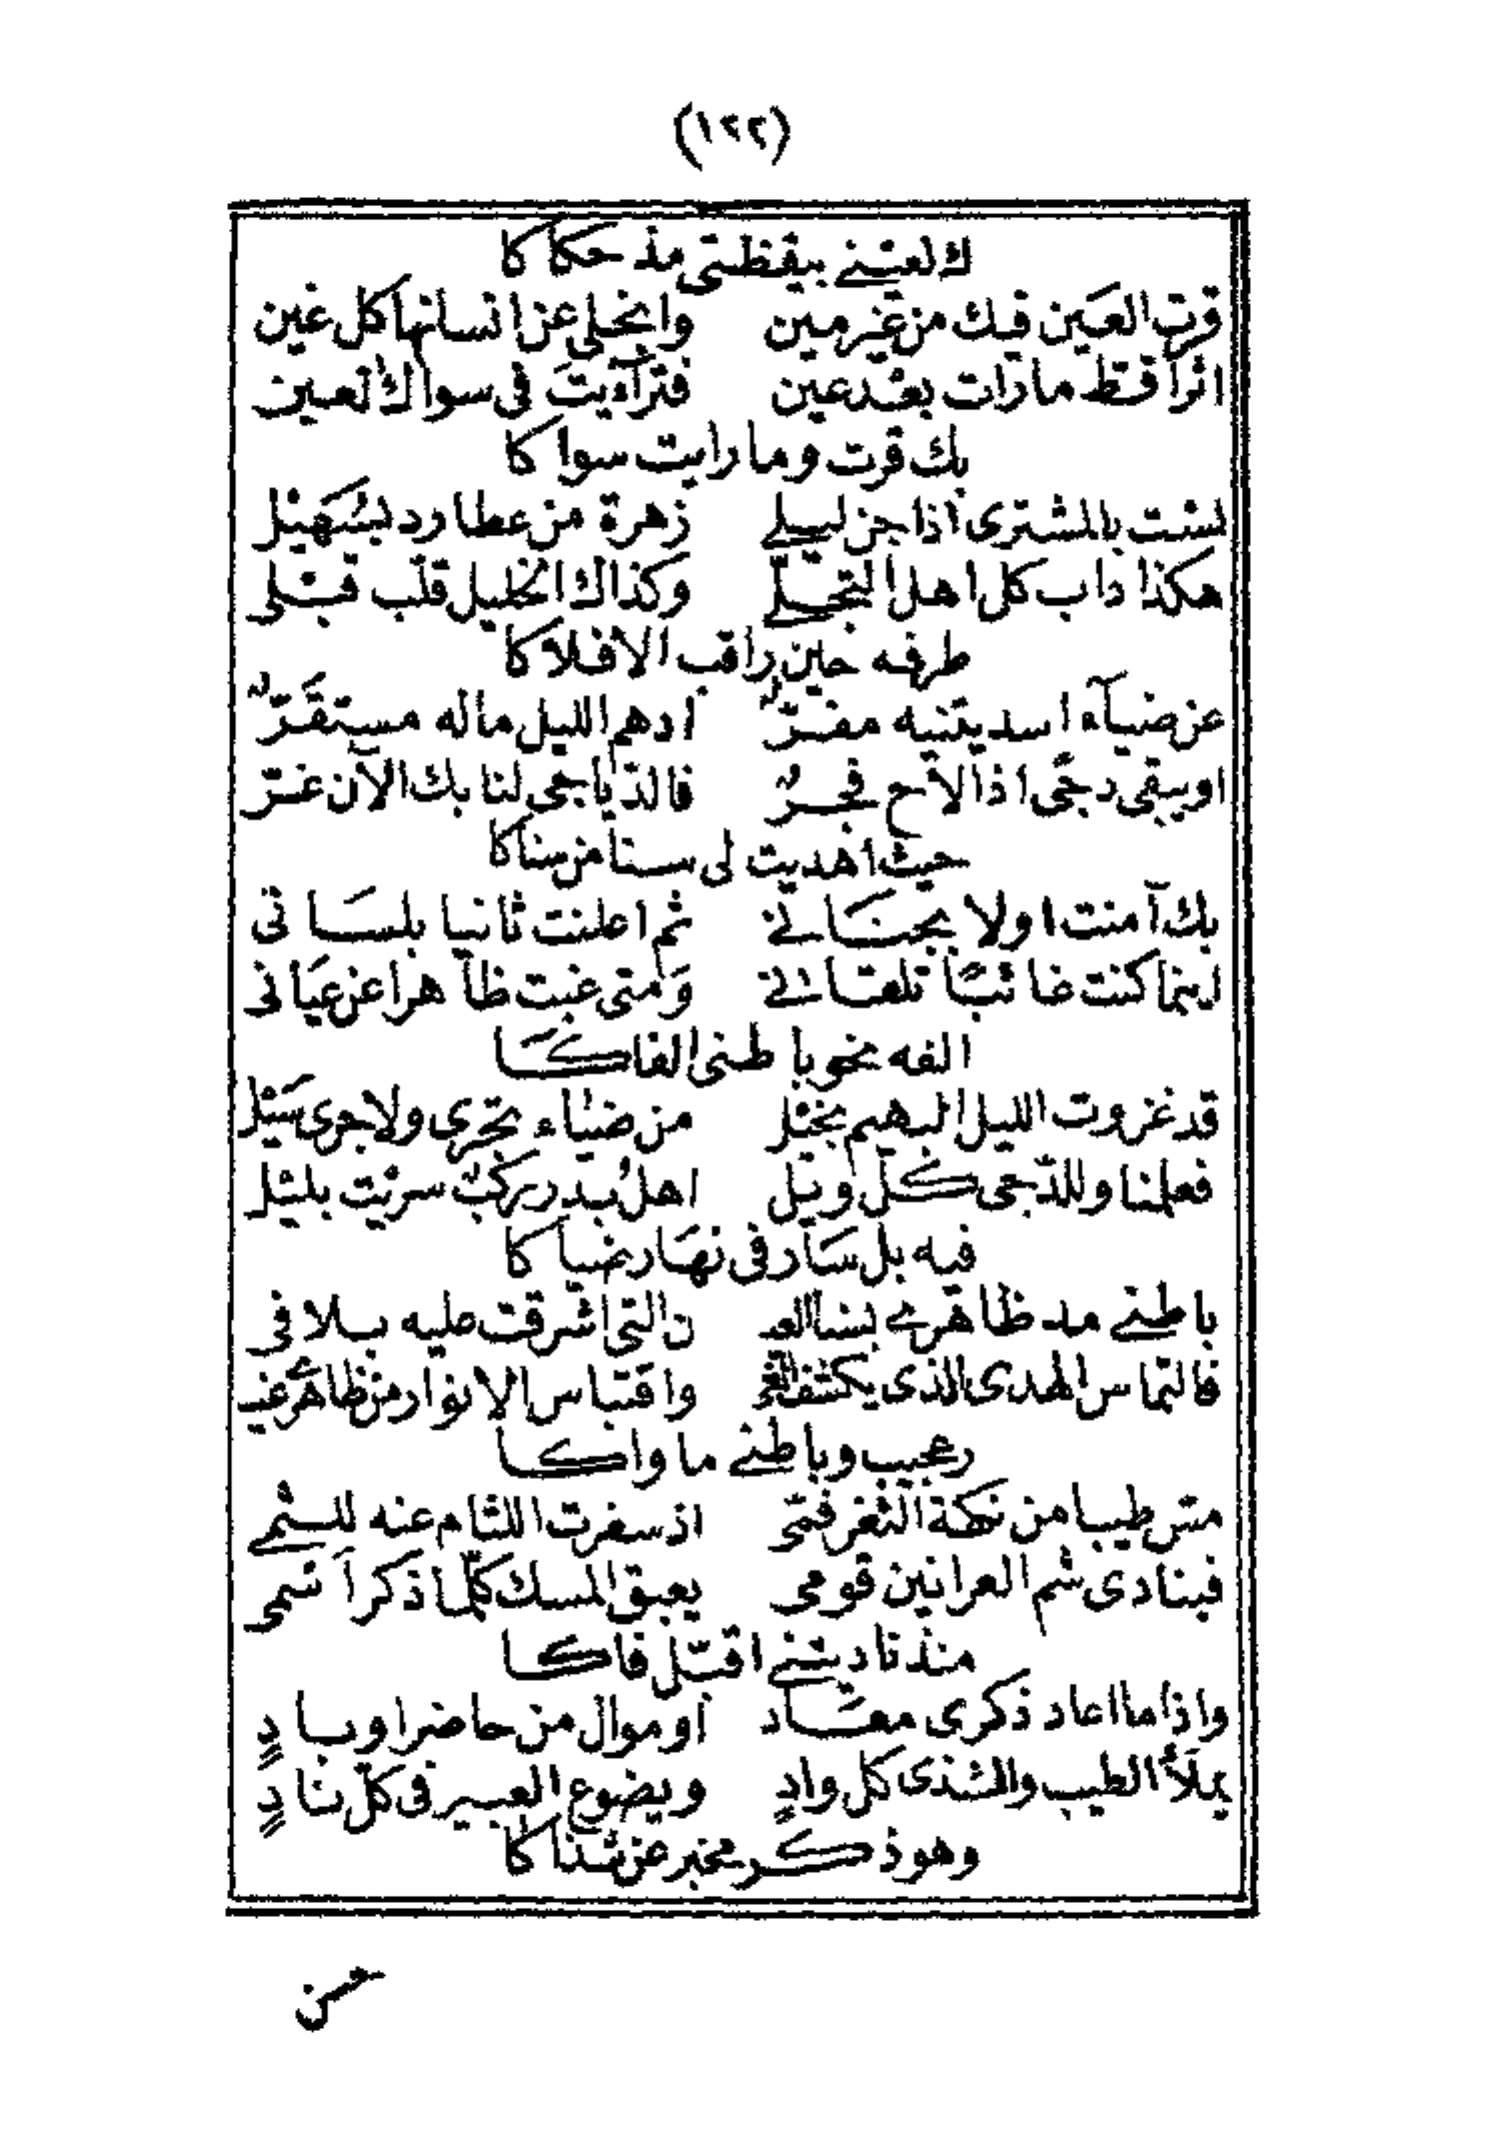 (١٢٢)
ك لعيني بيقظتي مذ حكاكا
قرت العين فيك من غير مين وانجلى عن انسانها كل غين
اثرا قط مارات بعد عين فترآءيت في سواك لعين
بك قرت وما رايت سواكا
لست بالمشترى اذا جن ليلي زهرة من عطارد بسهيل
هكذا داب كل اهل التجلّي وكذاك الخليل قلّب قبلي
طرفه حين راقب الافلاكا
عن ضيآء اسديتنيه مفرّ ادهم الليل ماله مستقرّ
او يبقى دجًى اذا لاح فجرٌ فالدّياجي لنا بك الآن غرّ
حيث اهديت لي سنا من سناكا
بك آمنت اولا بجناني ثم اعلنت ثانيا بلساني
اينما كنت غائبًا تلقاني ومتى غبت ظاهرا عن عياني
الفه نحو باطني الفاكا
قد غزوت الليل البهيم بخيل من ضياء تجرى ولا جرى سيل
فعلمنا وللدّجى كل ويل اهل بدر ركب سريت بليل
فيه بل سار في نهار ضياكا
باطني مد ظاهري بسنا العد ن التي اشرقت عليه بلا في
فالتماس الهدى الذى يكشف الغي واقتباس الانوار من ظاهري غي
رعجيب وباطني ماواكا
مس طيبا من نكهة الثغر فمّى اذ سفرت اللثام عنه للثمي
فبنادى شم العرانين قومي يعبق المسك كلّما ذكر اسمى
منذ ناديتني اقبّل فاكا
واذا ما اعاد ذكرى معاد او موال من حاضر او بادٍ
يملأ الطيب والشذى كل وادٍ ويضوع العبير في كلّ نادٍ
وهو ذكر مخبر عن شذاكا